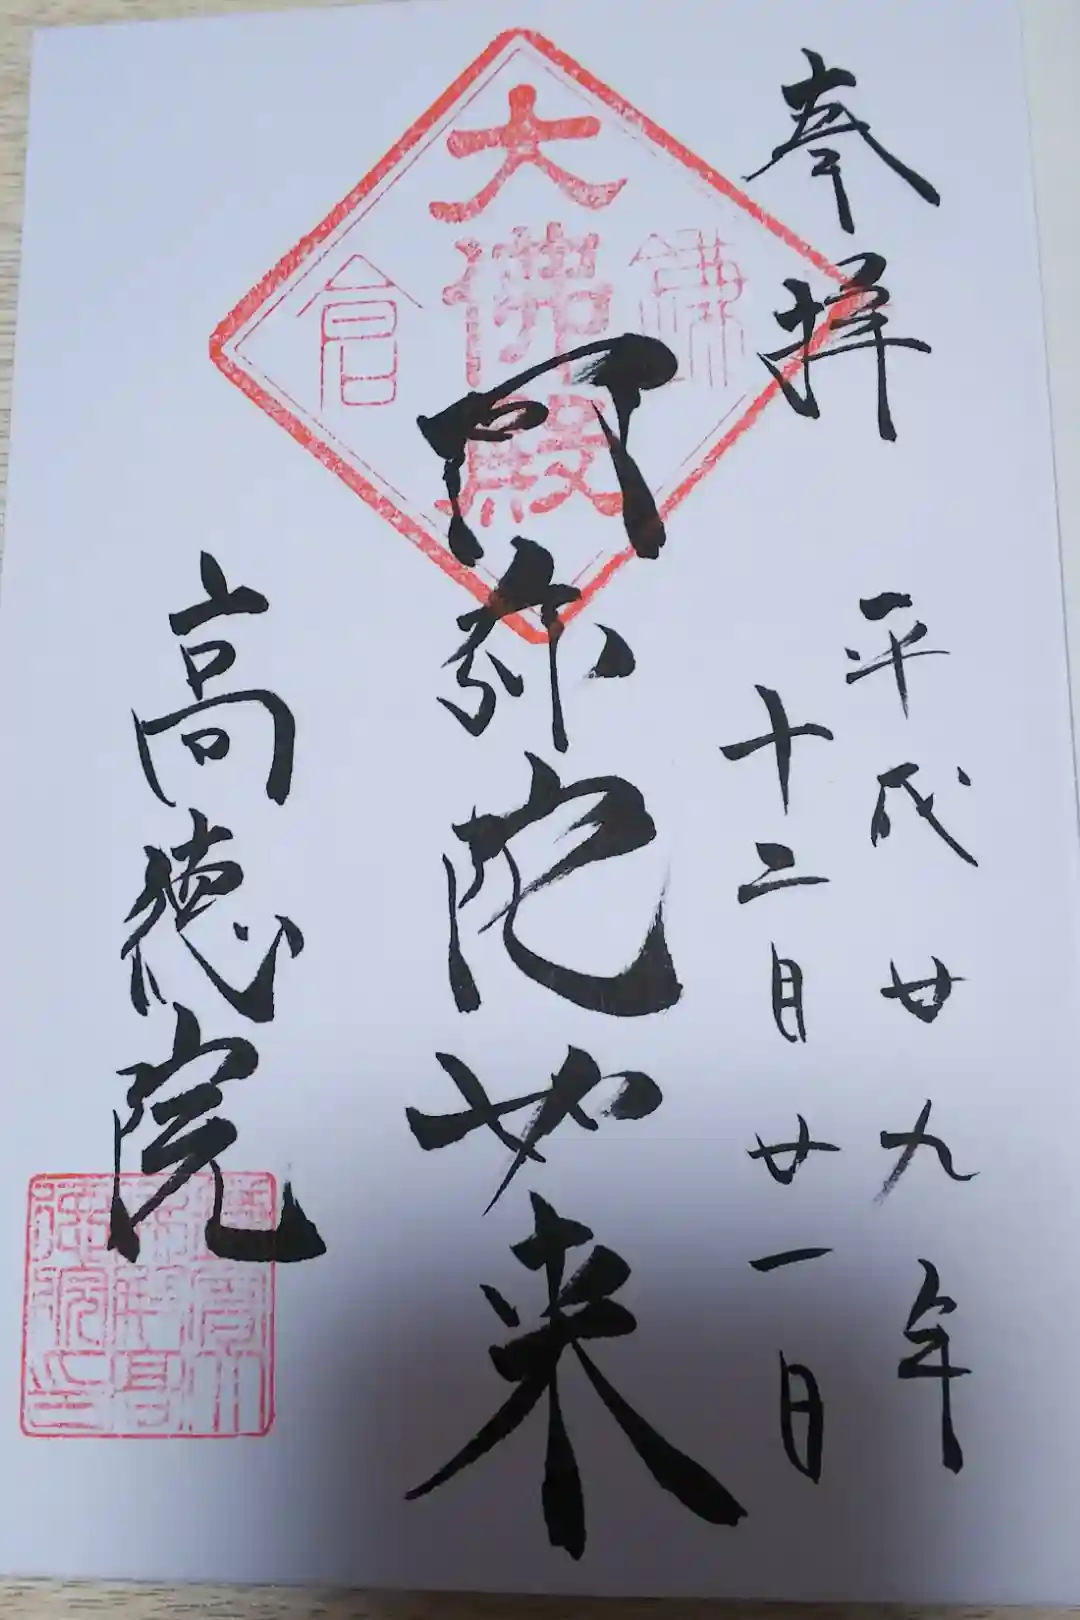 奉拝
平成廿九年
十二月廿一日
大佛殿
鎌
倉
阿弥陀如来
高徳院